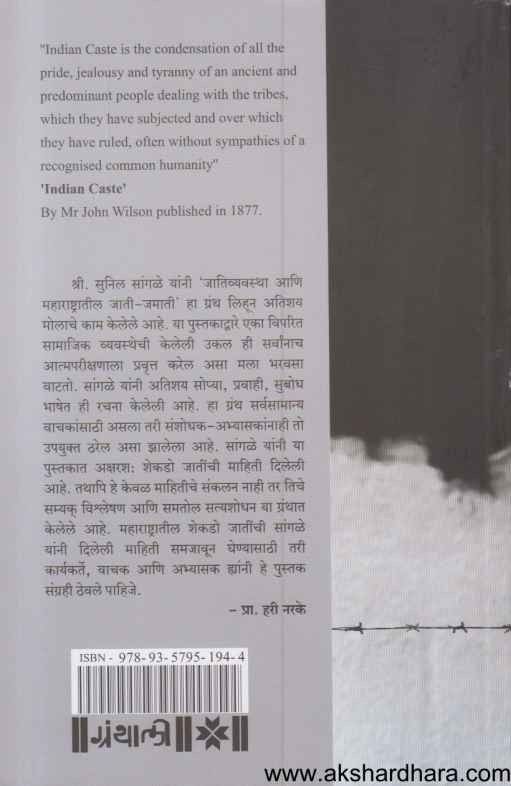 "Indian Caste is the condensation of all the
pride, jealousy and tyranny of an ancient and
predominant people dealing with the tribes,
which they have subjected and over which
they have ruled, often without sympathies of a
recognised common humanity"
'Indian Caste'
By Mr John Wilson published in 1877.
श्री. सुनिल सांगळे यांनी 'जातिव्यवस्था आणि
महाराष्ट्रातील जाती-जमाती' हा ग्रंथ लिहून अतिशय
मोलाचे काम केलेले आहे. या पुस्तकाद्वारे एका विपरित
सामाजिक व्यवस्थेची केलेली उकल ही सर्वांनाच
आत्मपरीक्षणाला प्रवृत्त करेल असा मला भरवसा
वाटतो. सांगळे यांनी अतिशय सोप्या, प्रवाही, सुबोध
भाषेत ही रचना केलेली आहे. हा ग्रंथ सर्वसामान्य
वाचकांसाठी असला तरी संशोधक-अभ्यासकांनाही तो
उपयुक्त ठरेल असा झालेला आहे. सांगळे यांनी या
पुस्तकात अक्षरश: शेकडो जातींची माहिती दिलेली
आहे. तथापि हे केवळ माहितीचे संकलन नाही तर तिचे
सम्यक् विश्लेषण आणि समतोल सत्यशोधन या ग्रंथात
केलेले आहे. महाराष्ट्रातील शेकडो जातींची सांगळे
यांनी दिलेली माहिती समजावून घेण्यासाठी तरी
कार्यकर्ते, वाचक आणि अभ्यासक ह्यांनी हे पुस्तक
संग्रही ठेवले पाहिजे.
– प्रा. हरी नरके
ISBN - 978-93-5795-194-4
ग्रंथाली
www.akshardhara.com